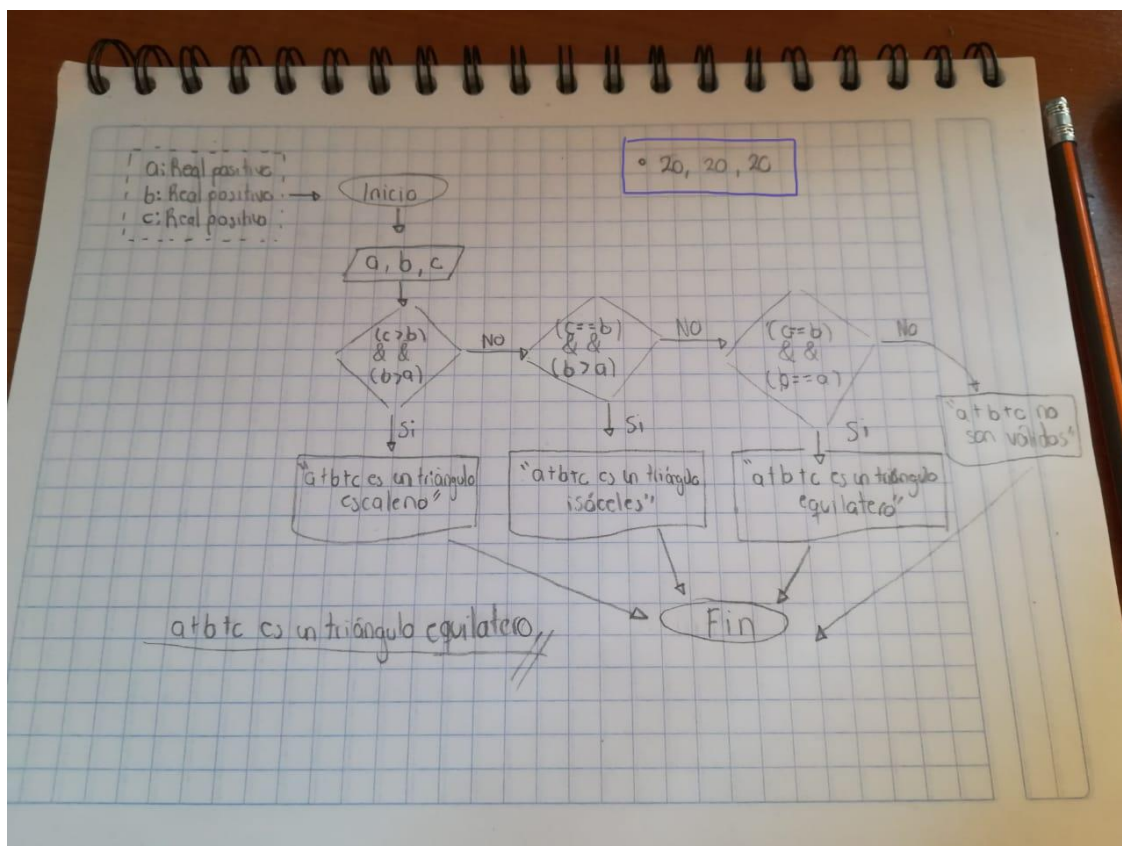 a: Real positivo
b: Real positivo
c: Real positivo
Inicio
• 20, 20, 20
a, b, c
(c>b)
& &
(b>a)
NO
(c==b)
& &
(b>a)
NO
(c==b)
& &
(b==a)
No
Si
Si
Si
"a+b+c no
son válidos"
"a+b+c es un triángulo
escaleno"
"a+b+c es un triángulo
isóceles"
"a+b+c es un triángulo
equilatero"
Fin
a+b+c es un triángulo equilatero